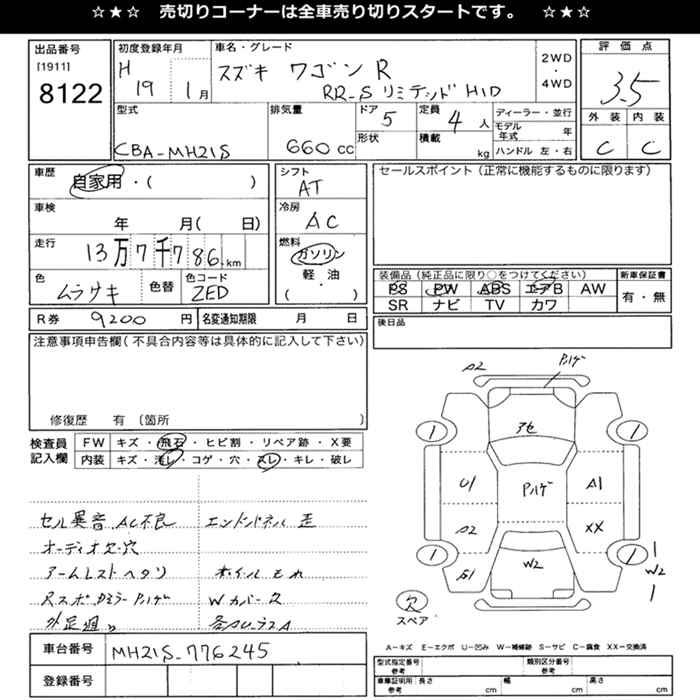 ☆★☆ 売切りコーナーは全車売り切りスタートです。 ☆★☆
出品番号
[1911]
8122
初度登録年月
H 19 1月
車名・グレード
スズキ ワゴンR
RR-S リミテッド HID
2WD
・
4WD
評価点
3.5
外装 内装
C C
型式
CBA-MH21S
排気量
660 cc
ドア 5
形状
定員 4 人
積載 kg
ディーラー・並行
モデル年式 年
ハンドル 左・右
車歴
自家用・( )
車検
年 月( 日)
走行
13万7千786 km
色
ムラサキ
色替
色コード
ZED
シフト
AT
冷房
AC
燃料
ガソリン
軽・油
( )
セールスポイント(正常に機能するものに限ります)
装備品(純正品に限り○をつけてください)
PS PW ABS エアB AW
SR ナビ TV カワ
新車保証書
有・無
R券 9200 円
名変通知期限 月 日
後日品
注意事項申告欄(不具合内容等は具体的に記入して下さい)
修復歴 有 〔箇所 〕
検査員
記入欄
FW キズ・飛石・ヒビ割・リペア跡・X要
内装 キズ・汚レ・コゲ・穴・スレ・キレ・破レ
セル異音 AC不良 エンドパネル歪
オーディオ欠・穴
アームレストヘタリ ホイルもれ
RスポカミラーPハゲ Wカバー欠
外足廻り
A2 Pハゲ
1 アセ 1
U1 Pハゲ A1
A2 XX
1 W2 1
S1 W2
欠
スペア
A-キズ E-エクボ U-凹み W-補修跡 S-サビ C-腐食 XX-交換済
車台番号 MH21S-776245
登録番号
型式指定番号
参考
類別区分番号
参考
車庫証明用
参考
長さ cm 幅 cm 高さ cm